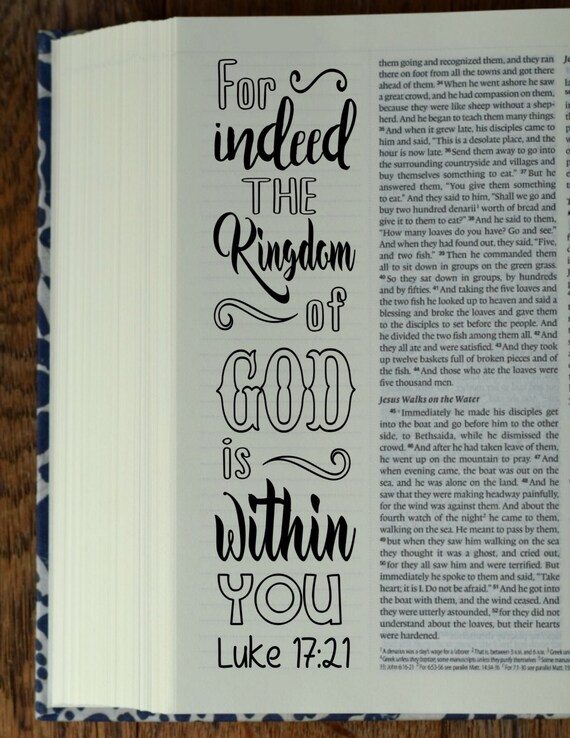 For
indeed
THE
Kingdom
of
GOD
is
within
YOU
Luke 17:21
them going and recognized them, and they ran
there on foot from all the towns and got there
ahead of them. 34 When he went ashore he saw
a great crowd, and he had compassion on them,
because they were like sheep without a shep-
herd. And he began to teach them many things.
35 And when it grew late, his disciples came to
him and said, "This is a desolate place, and the
hour is now late. 36 Send them away to go into
the surrounding countryside and villages and
buy themselves something to eat." 37 But he
answered them, "You give them something
to eat." And they said to him, "Shall we go and
buy two hundred denarii¹ worth of bread and
give it to them to eat?" 38 And he said to them,
"How many loaves do you have? Go and see."
And when they had found out, they said, "Five,
and two fish." 39 Then he commanded them
all to sit down in groups on the green grass.
40 So they sat down in groups, by hundreds
and by fifties. 41 And taking the five loaves and
the two fish he looked up to heaven and said a
blessing and broke the loaves and gave them
to the disciples to set before the people. And
he divided the two fish among them all. 42 And
they all ate and were satisfied. 43 And they took
up twelve baskets full of broken pieces and of
the fish. 44 And those who ate the loaves were
five thousand men.
Jesus Walks on the Water
45 Immediately he made his disciples get
into the boat and go before him to the other
side, to Bethsaida, while he dismissed the
crowd. 46 And after he had taken leave of them,
he went up on the mountain to pray. 47 And
when evening came, the boat was out on the
sea, and he was alone on the land. 48 And he
saw that they were making headway painfully,
for the wind was against them. And about the
fourth watch of the night² he came to them,
walking on the sea. He meant to pass by them,
49 but when they saw him walking on the sea
they thought it was a ghost, and cried out,
50 for they all saw him and were terrified. But
immediately he spoke to them and said, "Take
heart; it is I. Do not be afraid." 51 And he got into
the boat with them, and the wind ceased. And
they were utterly astounded, 52 for they did not
understand about the loaves, but their hearts
were hardened.